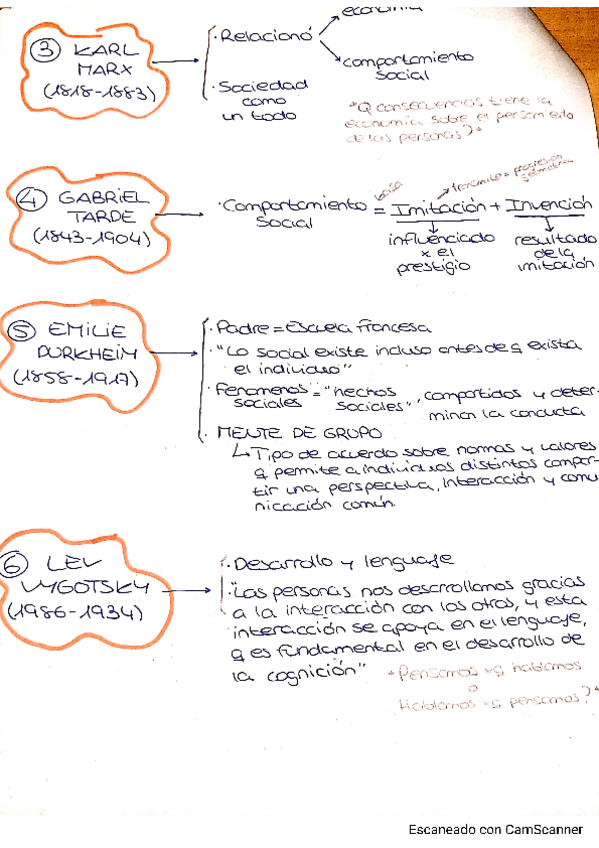 economía
③ KARL
MARX
(1818-1883)
· Relacionó
comportamiento
social
· Sociedad
como
un todo
"Q consecuencias tiene la
economía sobre el pensamiento
de las personas?"
④ GABRIEL
TARDE
(1843-1904)
· Comportamiento = Imitación + Invención
Social
base
transmite = progresión
geométrica
influenciado
x el
prestigio
resultado
de la
imitación
⑤ EMILIE
DURKHEIM
(1858-1917)
· Padre = Escuela francesa
· "Lo social existe incluso antes de q exista
el individuo"
· Fenómenos = "hechos
sociales sociales", compartidos y deter-
minan la conducta
· MENTE DE GRUPO
↳ Tipo de acuerdo sobre normas y valores
q permite a individuos distintos compar-
tir una perspectiva, interacción y comu
nicación común.
⑥ LEV
VYGOTSKY
(1986-1934)
· Desarrollo y lenguaje
· "Las personas nos desarrollamos gracias
a la interacción con los otros, y esta
interacción se apoya en el lenguaje,
q es fundamental en el desarrollo de
la cognición"
"Pensamos xq hablamos
o
Hablamos xq pensamos?"
Escaneado con CamScanner